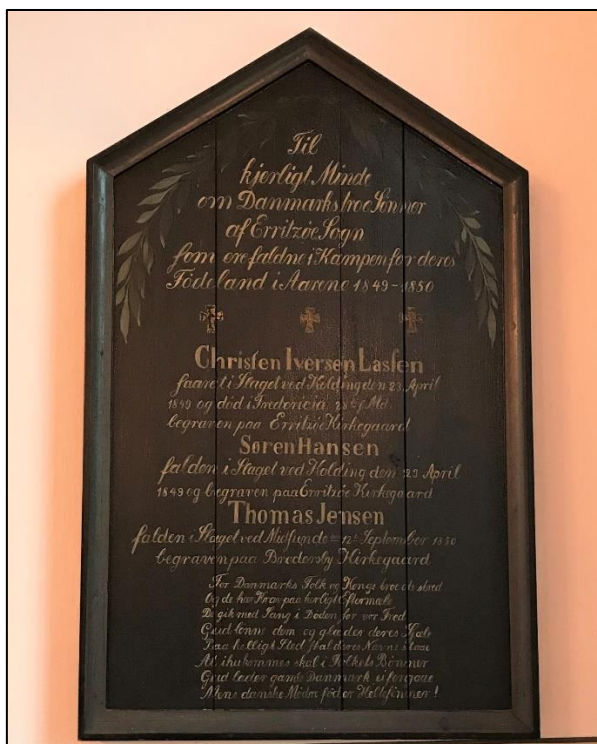 Til
kjerligt Minde
om Danmarks troe Sönner
af Erritzöe Sogn
som ere faldne i Kampen for deres
Födeland i Aarene 1849-1850
Christen Iversen Lassen
saaret i Slaget ved Kolding den 23 April
1849 og död i Fredericia 28 Md.
begraven paa Erritzöe Kirkegaard
Søren Hansen
falden i Slaget ved Kolding den 23 April
1849 og begraven paa Erritzöe Kirkegaard
Thomas Jensen
falden i Slaget ved Midsunde 12 September 1850
begraven paa Brodersby Kirkegaard
For Danmarks Folk og Konge bröd de stred
Og de har Krav paa herligt Eftermæle
De gik med Sang i Döden for vor Fred
Gud lönne dem og glæde deres Sjæle
Paa helligt Sted skal deres Navne staae
At ihukommes skal i Folkets Bönner
Gud lader gamle Danmark ei forgaae
Mens danske Mödre föder Heltesönner!